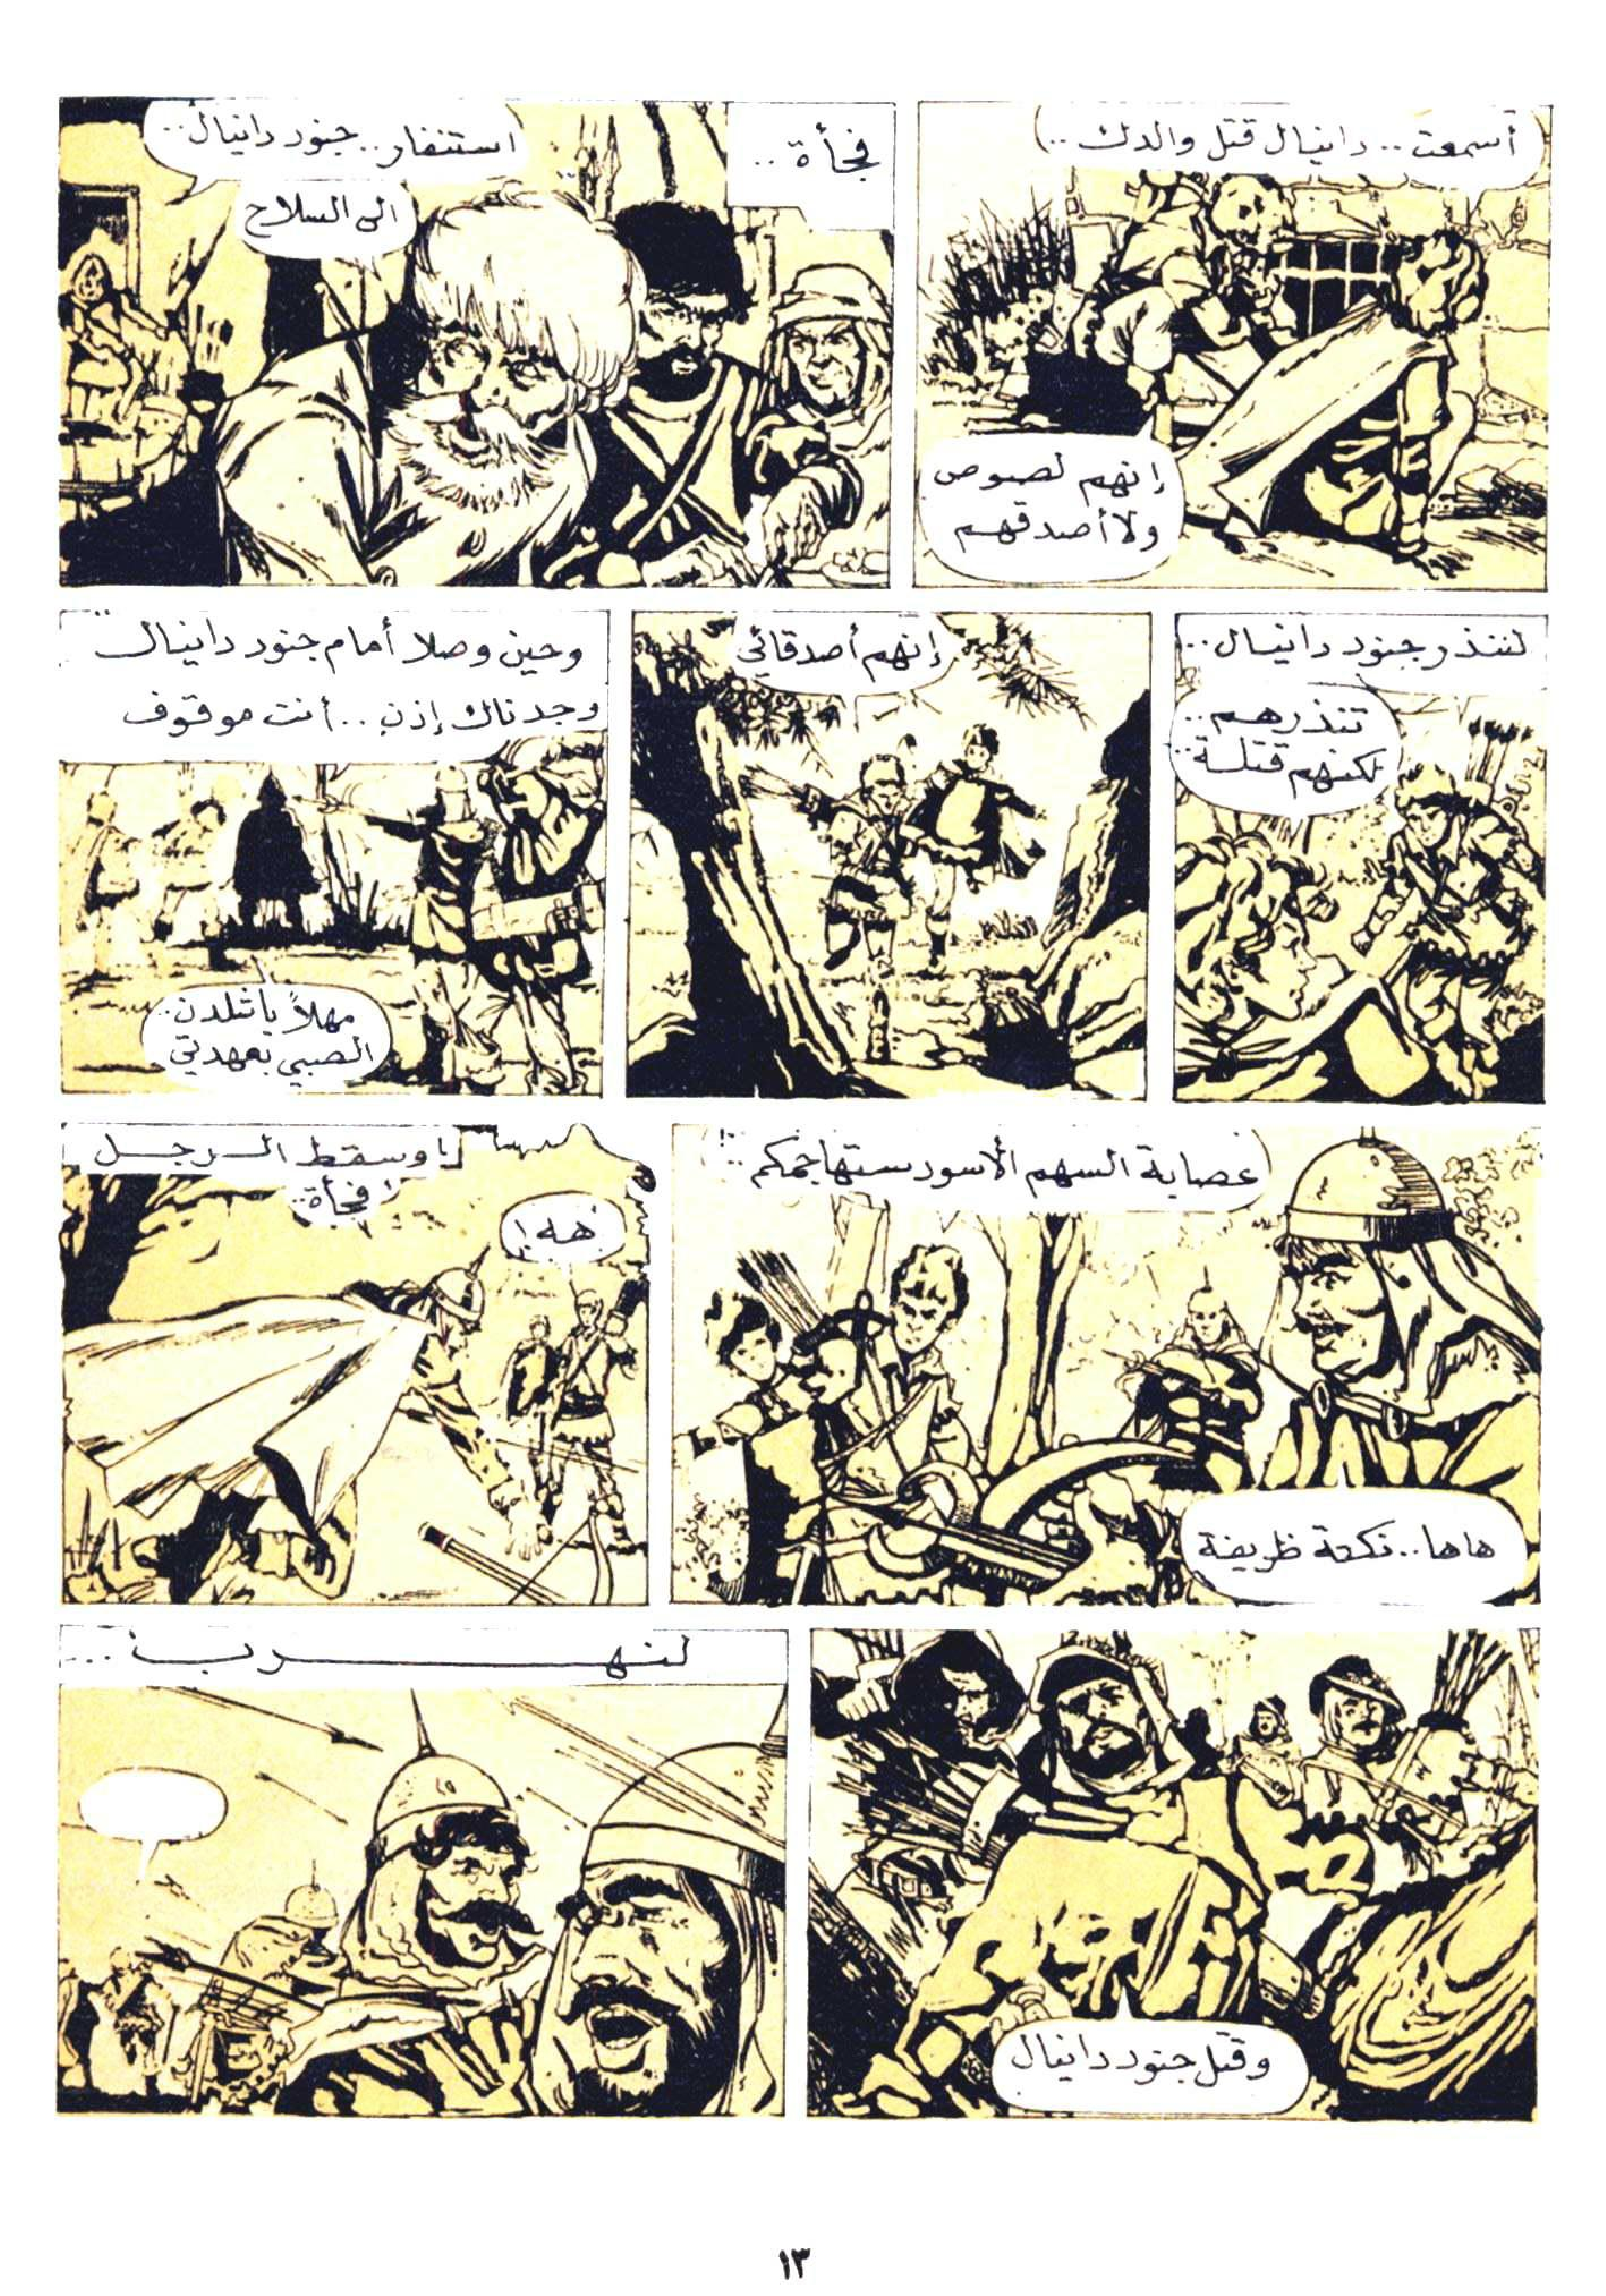 أسمعت.. دانيال قتل والدك..
إنهم لصوص
ولا أصدقهم
فجأة..
استنفار.. جنود دانيال..
الى السلاح
لننذر جنود دانيال..
تنذرهم..
لكنهم قتلة..
إنهم أصدقائي
وحين وصلا أمام جنود دانيال..
وجدناك إذن.. أنت موقوف
مهلاً يا شلدن..
الصبي بعهدتي
عصابة السهم الأسود ستهاجمكم..!
هاها.. نكتة ظريفة
وسقط الرجل
فجأة..
هه!
وقتل جنود دانيال
لنهرب...
١٣